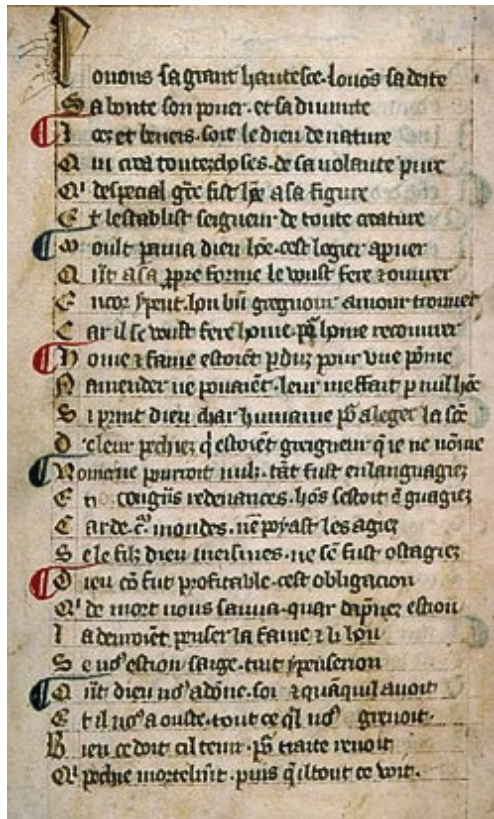 Louons sa grant hautesce. louōs sa deite
Sa bonte son pouer. et sa diuinite
et beneis. soit le dieu de nature
Qui crea toutez choses. de sa volante pure
Qⁱ despecial gr̄e fist hōe a sa figure
Et lestablist seigneur de toute creature
Moult paima dieu hōe. cest legier apuer
Qn̄t a sa ꝓpre forme le voust fere ⁊ ouurer
Encor ypeut. lon bn̄ greignour amour trouuer
Car il se voust fere home. pᵒ home recouurer
Home ⁊ fame estoiēt ꝑduz pour vne pōme
Namender ne pouaiēt. leur meffait ꝑ nul hōe
Si prinst dieu char humaine pᵒ aleger la
De leur pechiez q̄ estoiēt greigneur q̄ ie ne nōme
Nomerne pourroit nulz. tāt fust enlangagiez
En redeuances. hōs sestoit ē guagiez
Car de .cͫ. mondes. les agiez
Se le filz dieu meismes. ne sē fust ostagiez
Dieu cō fut profitable. cest obligacion
Qⁱ de mort nous sauua. quar dapnez estion
Ia deuroiēt penser la fame ⁊ li hōn
Se noꝰ estion saige. tuit ypenserion
Qn̄t dieu noꝰ a dōne. soi ⁊ quāquil auoit
Et il noꝰ a ouste. tout ce ql̄ noꝰ greuoit.
Bien ce doit cil tenir. pᵒ traite renoit
Qⁱ peche mortelmt̄. puis q̄ il tout ce voit.